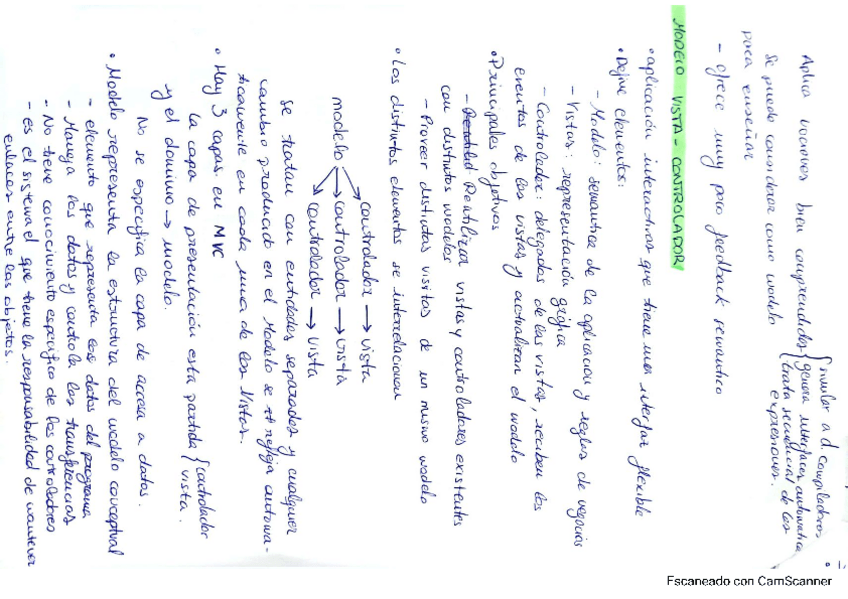 Aplica nociones bien comprendidas { similar a d. compiladores
genera interfaces automatica
trata secuencial de las expresiones.
se puede considerar como modelo
para enseñar
- ofrece muy poco feedback semántico
MODELO VISTA - CONTROLADOR
• aplicación interactivas que tiene una interfaz flexible
• Define elementos:
- Modelo: semántica de la aplicación y reglas de negocios
- Vistas: representación gráfica
- Controlador: delegados de las vistas, reciben los
eventos de las vistas y actualizan el modelo
• Principales objetivos
- Reutilizar vistas y controladores existentes
con distintos modelos
- Proveer distintas visitas de un mismo modelo
• Los distintos elementos se interrelacionan
controlador → vista
modelo → controlador → vista
controlador → vista
se tratan con entidades separadas y cualquier
cambio producido en el Modelo se refleja automa-
ticamente en cada una de las Vistas.
• Hay 3 capas en MVC
la capa de presentación esta partida { controlador
vista.
y el dominio → modelo.
No se especifica la capa de acceso a datos.
• Modelo representa la estructura del modelo conceptual
- elemento que representa los datos del programa
- Maneja los datos y controla las transferencias
- No tiene conocimiento específico de los controladores
- es el sistema el que tiene la responsabilidad de mantener
enlaces entre los objetos.
Escaneado con CamScanner